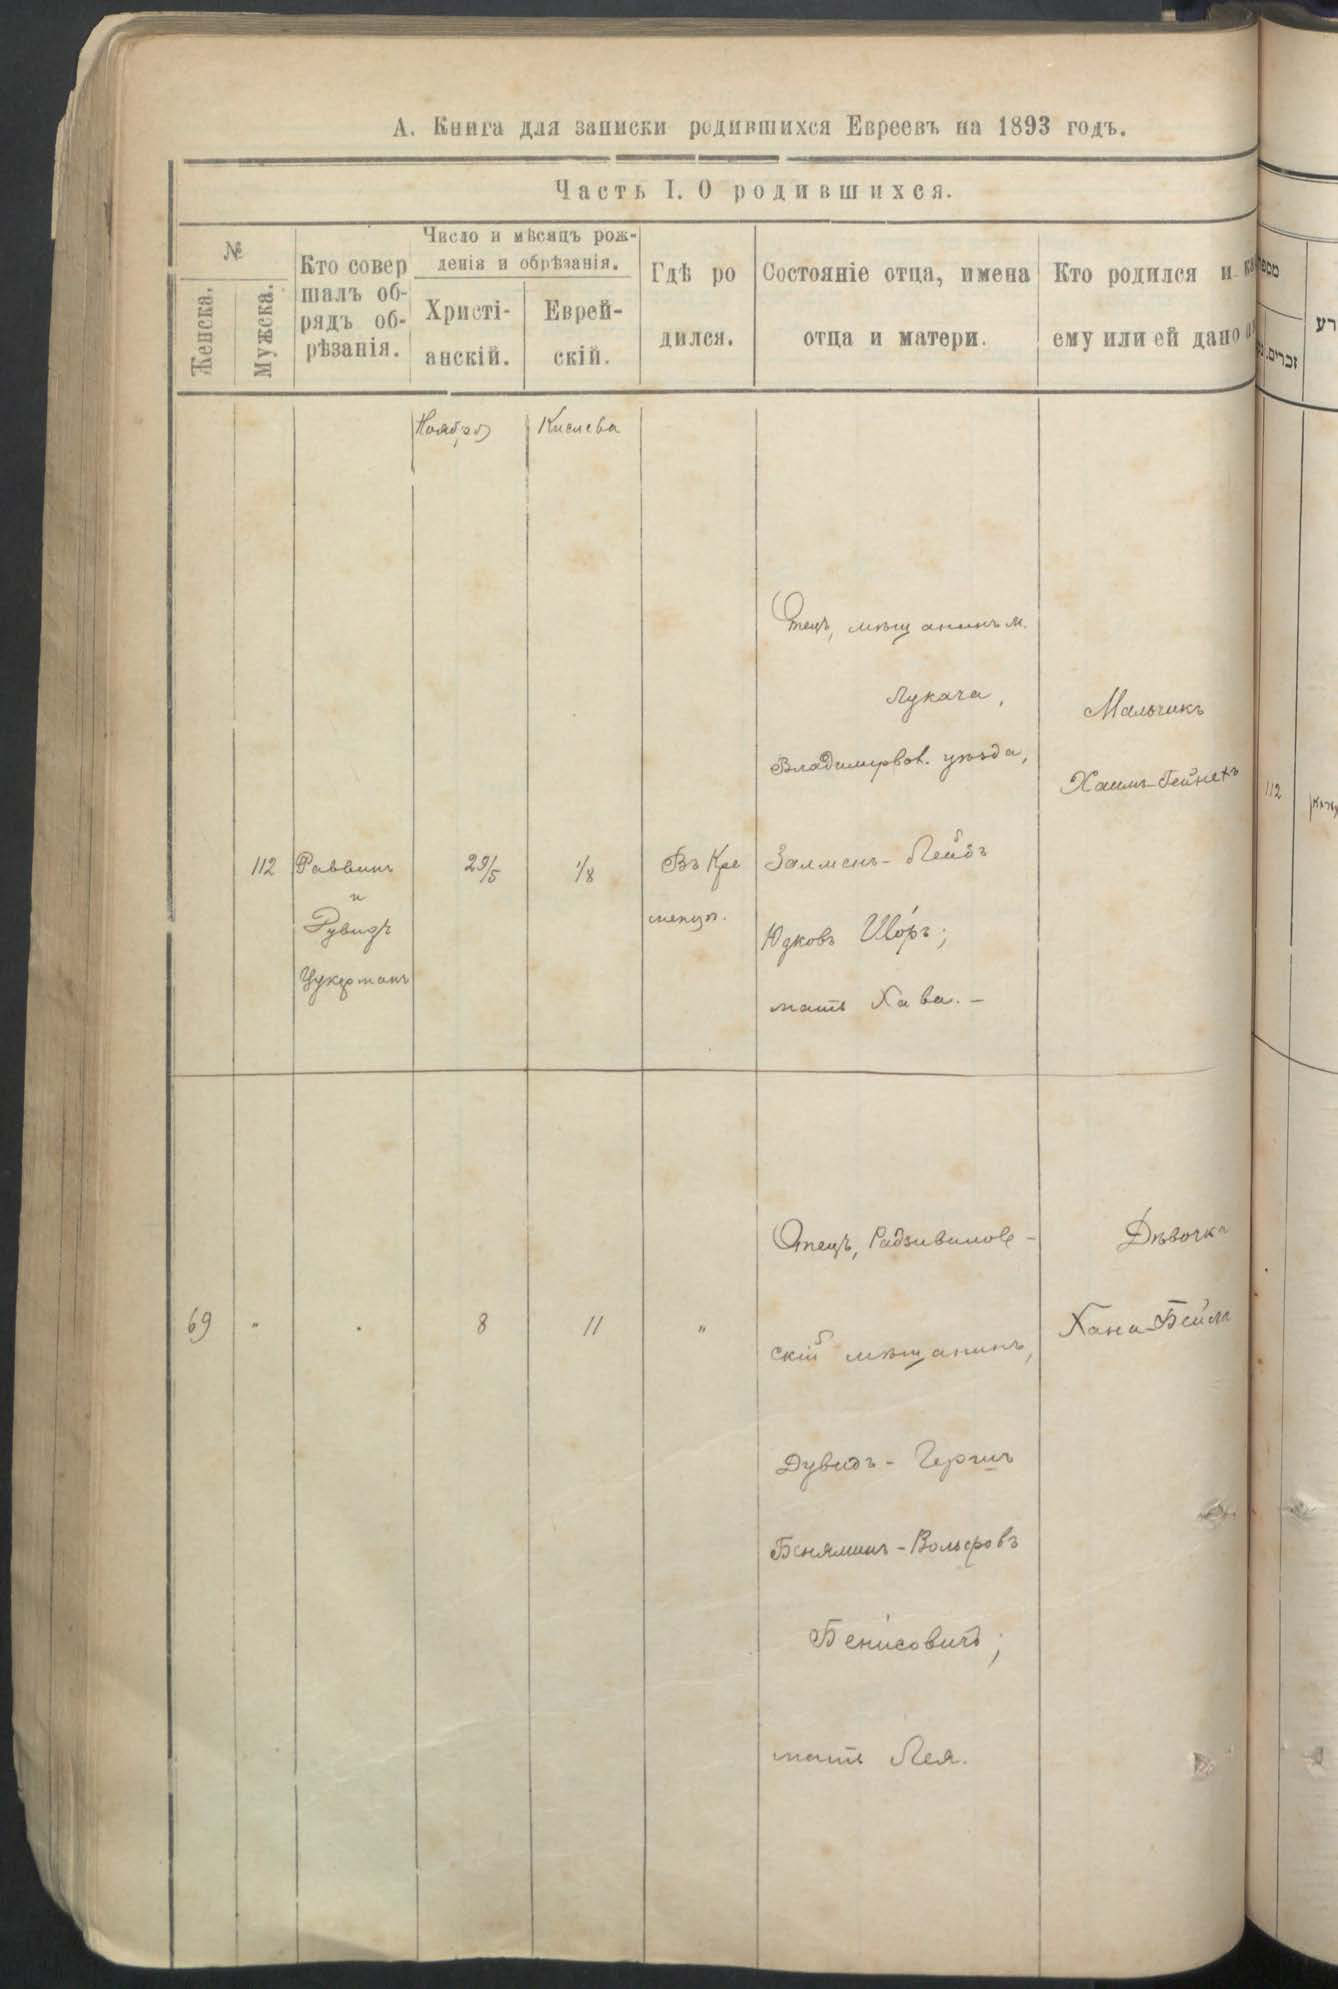 А. Книга для записки родившихся Евреевъ на 1893 годъ.
Часть I. О родившихся.
№
Женска.
Мужска.
Кто совер
шалъ об-
рядъ об-
рѣзанія.
Число и мѣсяцъ рож-
денія и обрѣзанія.
Христі-
анскій.
Еврей-
скій.
Гдѣ ро
дился.
Состояніе отца, имена
отца и матери.
Кто родился и
ему или ей дано
Ноября
Кислева
112
Раввинъ
и
Рувидъ
Цукерманъ
29/5
1/8
Въ Кре
менцѣ.
Отецъ, мѣщанинъ м.
Лукача,
Владимірвол. уѣзда,
Залменъ-Лейбъ
Юдковъ Шоръ;
мать Хава. -
Мальчикъ
Хаимъ-Гейнехъ
69
"
.
8
11
"
Отецъ, Радзивилов-
скій мѣщанинъ,
Дувидъ-Гершъ
Бенямин-Вольфовъ
Бенисовичъ;
мать Лея.
Дѣвочка
Хана-Бейла
זכרים.
רע
112